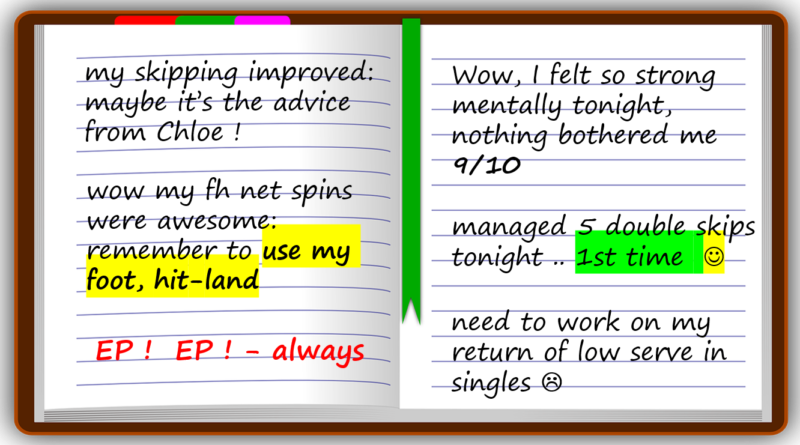 my skipping improved:
maybe it's the advice
from Chloe !
wow my fh net spins
were awesome:
remember to use my
foot, hit-land
EP ! EP ! - always
Wow, I felt so strong
mentally tonight,
nothing bothered me
9/10
managed 5 double skips
tonight .. 1st time ☺
need to work on my
return of low serve in
singles ☹